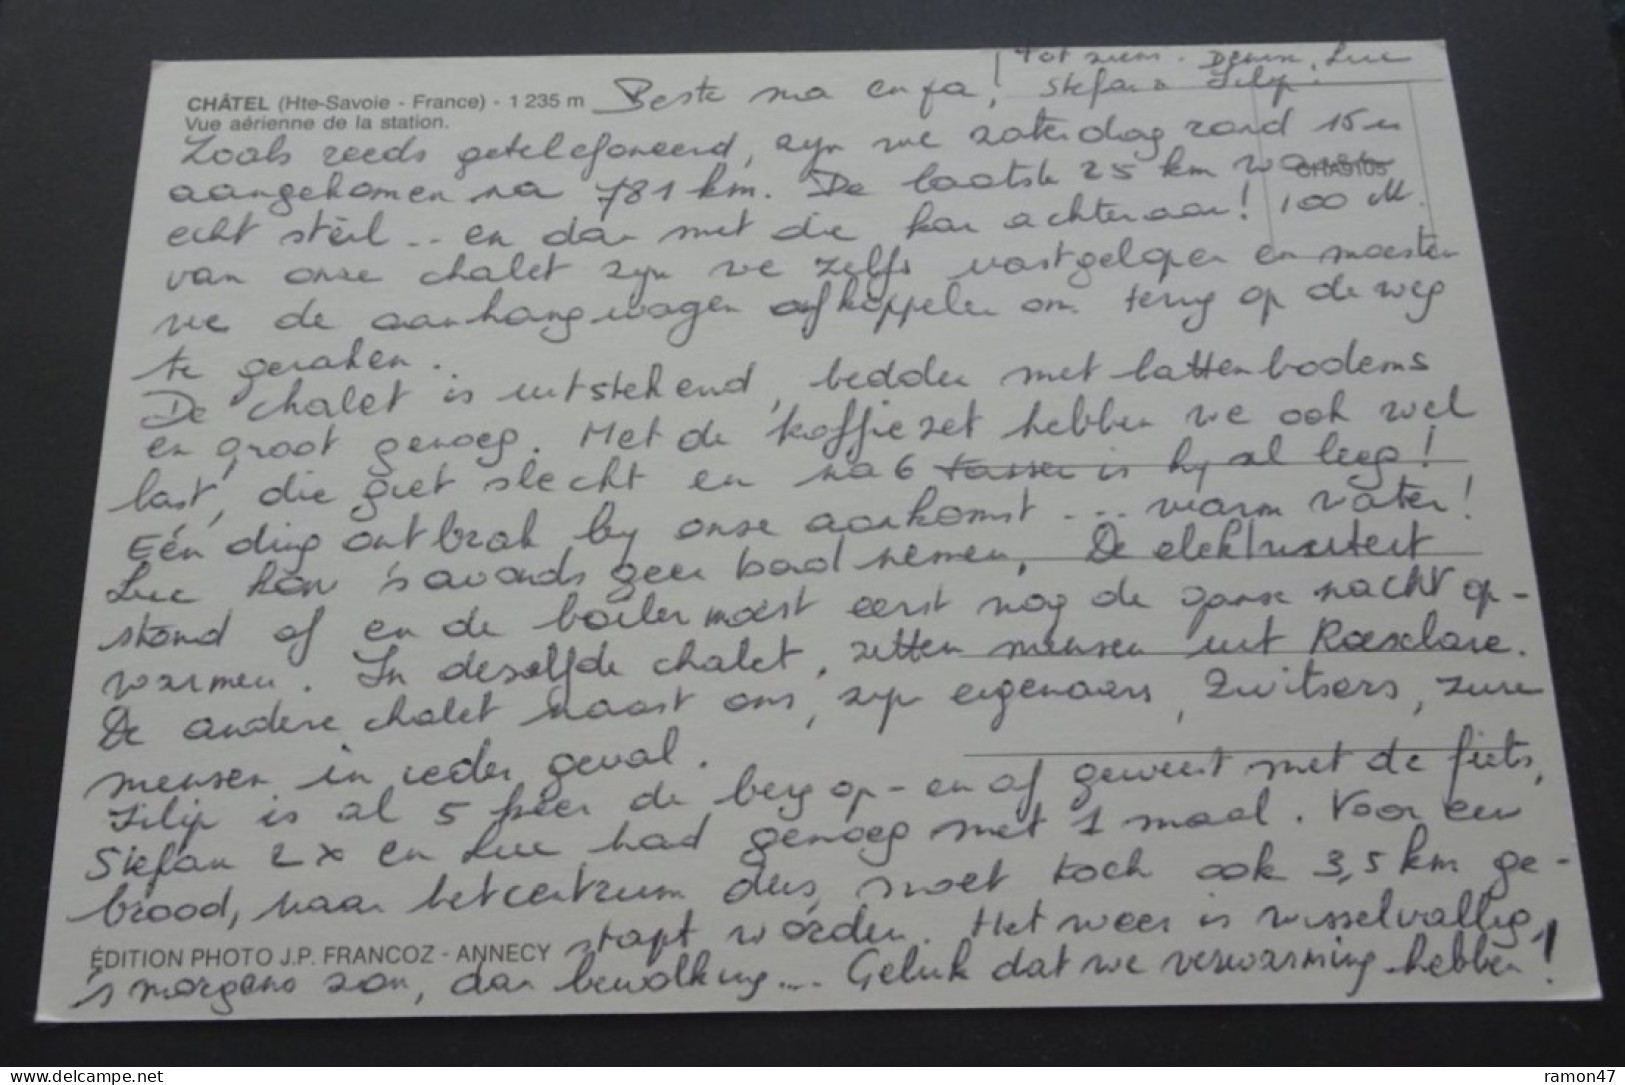 CHÂTEL (Hte-Savoie - France) - 1 235 m
Vue aérienne de la station.
Beste ma en pa,
Zoals reeds getelefoneerd, zijn we zaterdag rond 15 u
aangekomen na 781 km. De laatste 25 km was
echt steil .. en dan met die kar achteraan! 100 M.
van onze chalet zijn we zelfs vastgelopen en moesten
we de aanhangwagen afkoppelen om terug op de weg
te geraken.
De chalet is uitstekend, bedden met lattenbodems
en groot genoeg. Met de koffiezet hebben we ook wel
last, die giet slecht en na 6 tassen is hij al leeg!
Eén ding ontbrak bij onze aankomst ... warm water!
Luc kon 's avonds geen bad nemen. De elektriciteit
stond af en de boiler moest eerst nog de ganse nacht op-
warmen. In dezelfde chalet, zitten mensen uit Roeselare.
De andere chalet naast ons, zijn eigenaars, Zwitsers, zure
mensen in ieder geval.
Filip is al 5 keer de berg op- en af geweest met de fiets,
Stefan 2x en Luc had genoeg met 1 maal. Voor een
brood, naar het centrum dus, moet toch ook 3,5 km ge-
stapt worden. Het weer is wisselvallig,
's morgens zon, dan bewolking .... Geluk dat we verwarming hebben!
Tot ziens. Luc
Stefan & Filip.
ÉDITION PHOTO J.P. FRANCOZ - ANNECY
www.delcampe.net
ramon47